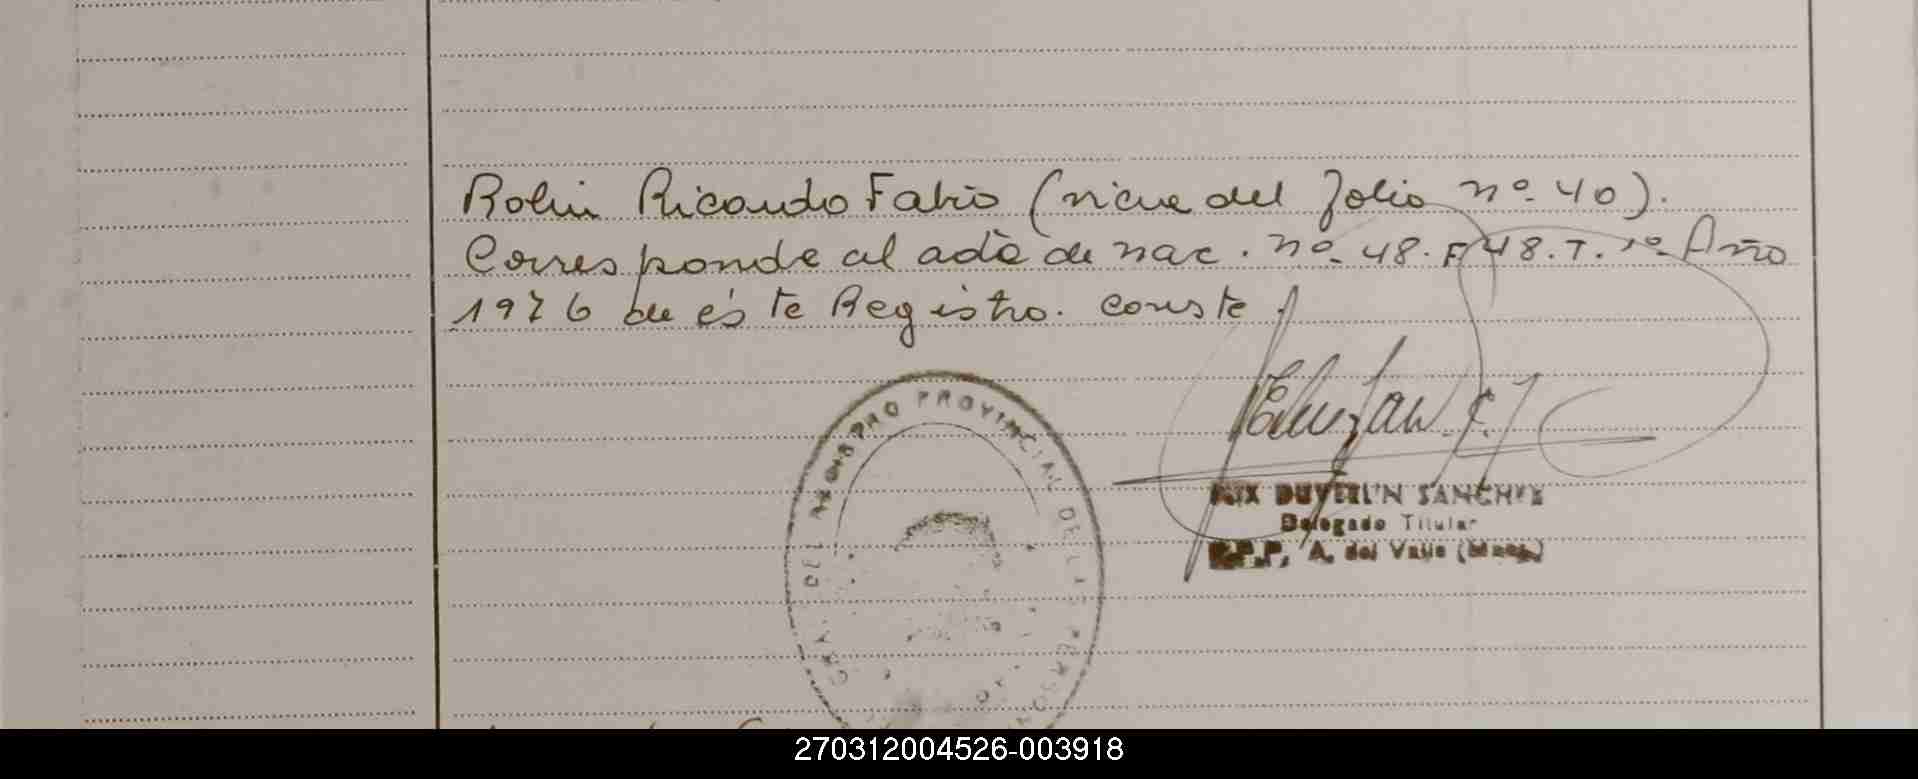 Robin Ricardo Fabio (viene del folio nº 40).
Corresponde al acta de nac. nº 48. F 48. T. 1º Año
1976 de éste Registro. conste.
PROVINCIAL DE LAS PERSO
DEL
DUVERLIN SANCHEZ
Delegado Titular
R.P.P. A. del Valle (Mza.)
270312004526-003918